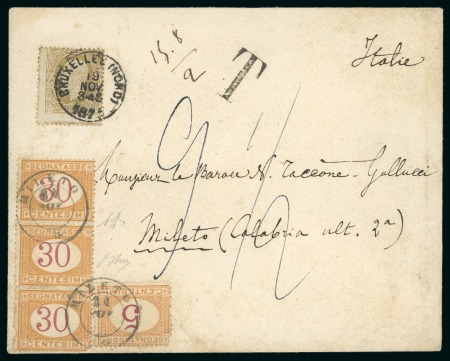 BRUXELLES (NORD)
19
NOV
3-4S
1875
15.8
/2
T
Italie
Monsieur le Baron N. Taccone-Gallucci
Mileto (Calabria ult. 2ª)
SEGNATASSE
30
CENTESIMI
MILETO
SEGNATASSE
30
CENTESIMI
SEGNATASSE
30
CENTESIMI
MILETO
SEGNATASSE
5
CENTESIMI